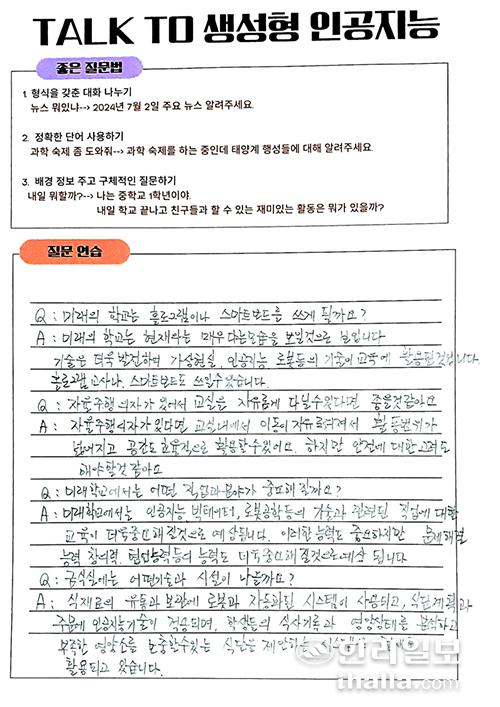 TALK TO 생성형 인공지능
좋은 질문법
1. 형식을 갖춘 대화 나누기
뉴스 뭐있나--> 2024년 7월 2일 주요 뉴스 알려주세요.
2. 정확한 단어 사용하기
과학 숙제 좀 도와줘--> 과학 숙제를 하는 중인데 태양계 행성들에 대해 알려주세요.
3. 배경 정보 주고 구체적인 질문하기
내일 뭐할까?--> 나는 중학교 1학년이야.
내일 학교 끝나고 친구들과 할 수 있는 재미있는 활동은 뭐가 있을까?
질문 연습
Q : 미래의 학교는 홀로그램이나 스마트보드를 쓰게 될까요?
A : 미래의 학교는 현재와는 매우 다른모습을 보일것으로 보입니다
기술은 더욱 발전하며 가상현실, 인공지능 로봇등의 기술이 교육에 활용될것입니다.
홀로그램 교사나, 스마트보드도 쓰일수있습니다.
Q : 자율주행 의자가 있어서 교실을 자유롭게 다닐수있다면 좋을것같아요
A : 자율주행의자가 있다면 교실내에서 이동이 자유로워져서 활동범위가
넓어지고 공간도 효율적으로 활용할수있어요. 하지만 안전에 대한고려도
해야할것 같아요
Q : 미래학교에서는 어떤 직업과분야가 중요해질까요?
A : 미래학교에서는 인공지능 빅데이터, 로봇공학등의 기술과 관련된 직업에 대한
교육이 더욱중요해질것으로 예상됩니다. 이러한능력도 중요하지만 문제해결
능력 창의력, 협업능력등의 능력도 더욱중요해질것으로예상 됩니다
Q : 급식실에는 어떤기술과 시설이 나올까요?
A : 식재료의 유통과 보관에 로봇과 자동화된 시스템이 사용되고, 식단계획과
주문에 인공지능기술이 적용되며, 학생들의 식사기록과 영양상태를 분석하고
부족한 영양소를 보충할수있는 식단을 제안하는
활용되고 있습니다.
한라일보
ihalla.com